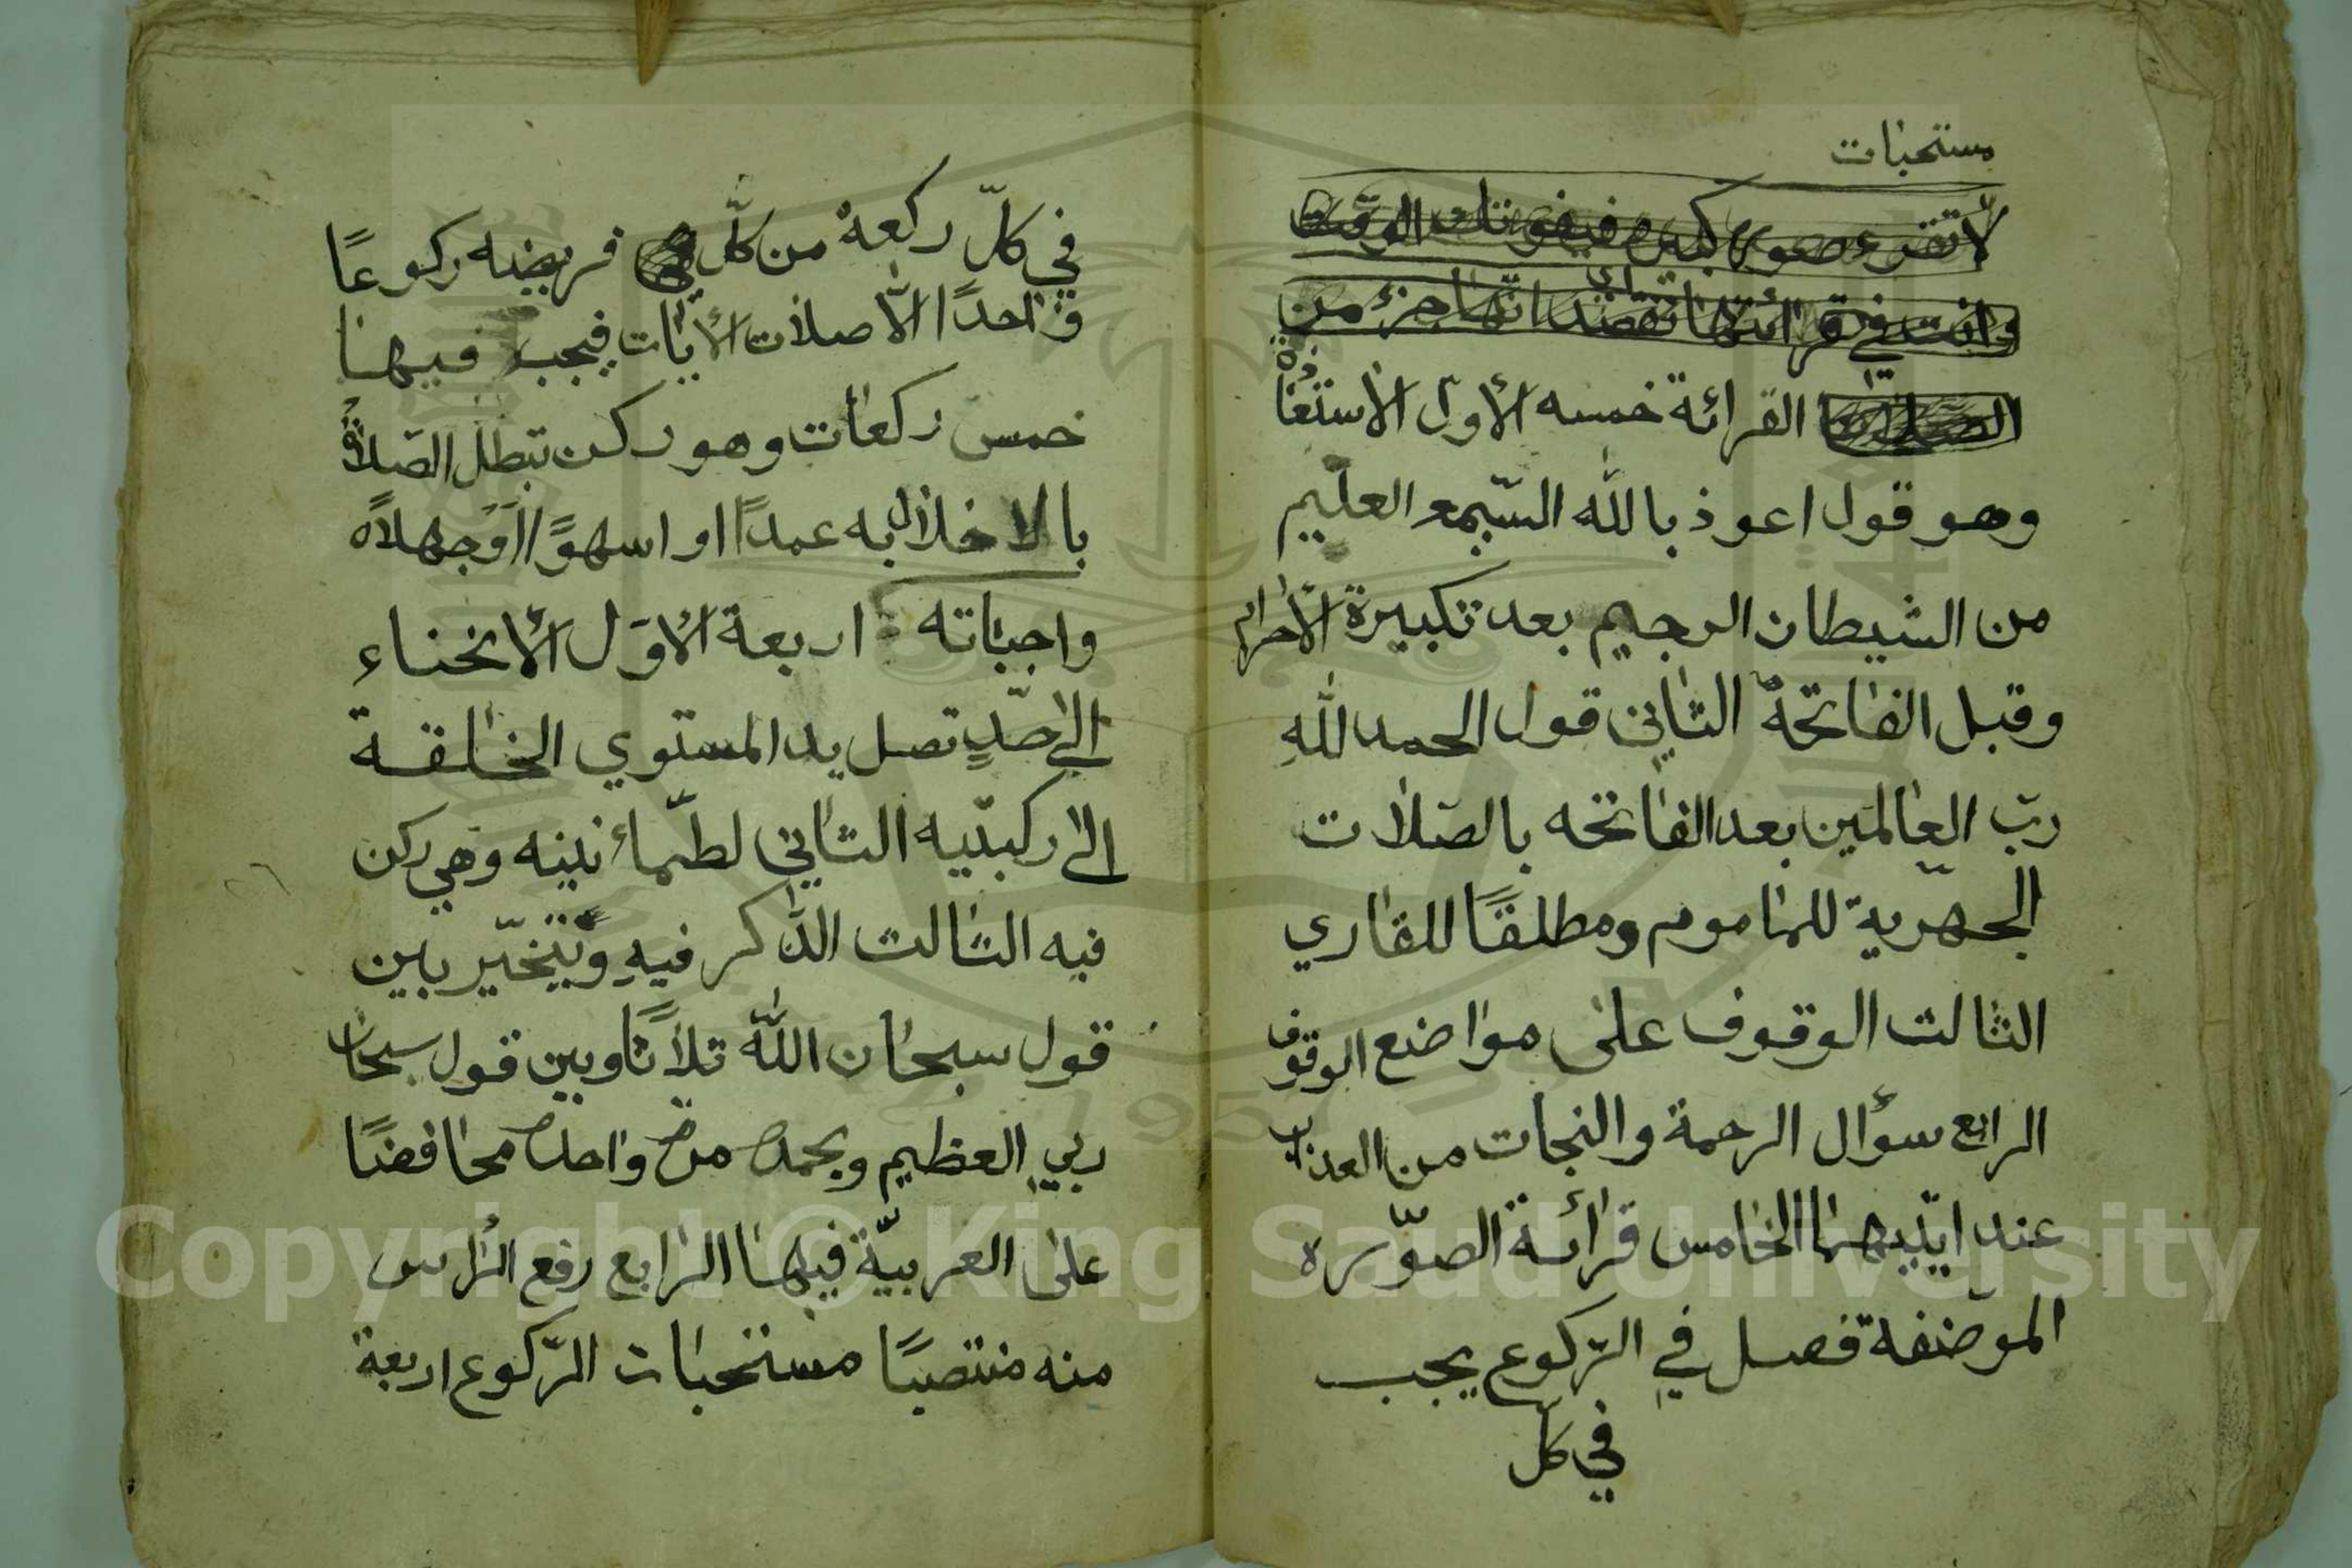 مستحبات
لا تقرء صورة كبيرة فيفوتك الوقت
وانت في قرائتها تقصد انّها جزء من
القرائة خمسه الأول الاستعاذة
وهو قول اعوذ بالله السّميع العليم
من الشيطان الرجيم بعد تكبيرة الأحرام
وقبل الفاتحة الثاني قول الحمد للهِ
ربّ العالمين بعد الفاتحه بالصّلات
الجهرّية للماموم ومطلقًا للقاري
الثالث الوقوف على مواضع الوقوف
الرابع سؤال الرحمة والنجات من العذاب
عند ايّتيهما الخامس قرائة الصوّره
الموضفة فصل في الرّكوع يجب
في كلّ
في كلّ ركعة من كلّ فريضه ركوعًا
واحدًا الّا صلات الأيّات فيجب فيها
خمس ركعات وهو ركن تبطل الصّلاة
بالاخلال به عمدًا او اسهوًا اوْ جهلاً
واجباته اربعة الاوّل الأنحناء
الى حدٍّ تصل يد المستوي الخلقة
الى ركبتّيه الثاني لطّمأنينه وهي ركن
فيه الثالث الذّكر فيهِ ويتخيّر بين
قول سبحان اللّه ثلاثًا وبين قول سبحان
ربي العظيم وبحمده مرة واحدة محافضًا
على العربيّة فيها الرابع رفع الرّأس
منه منتصبًا مستحبات الرّكوع اربعة
Copyright © King Saud University
1957